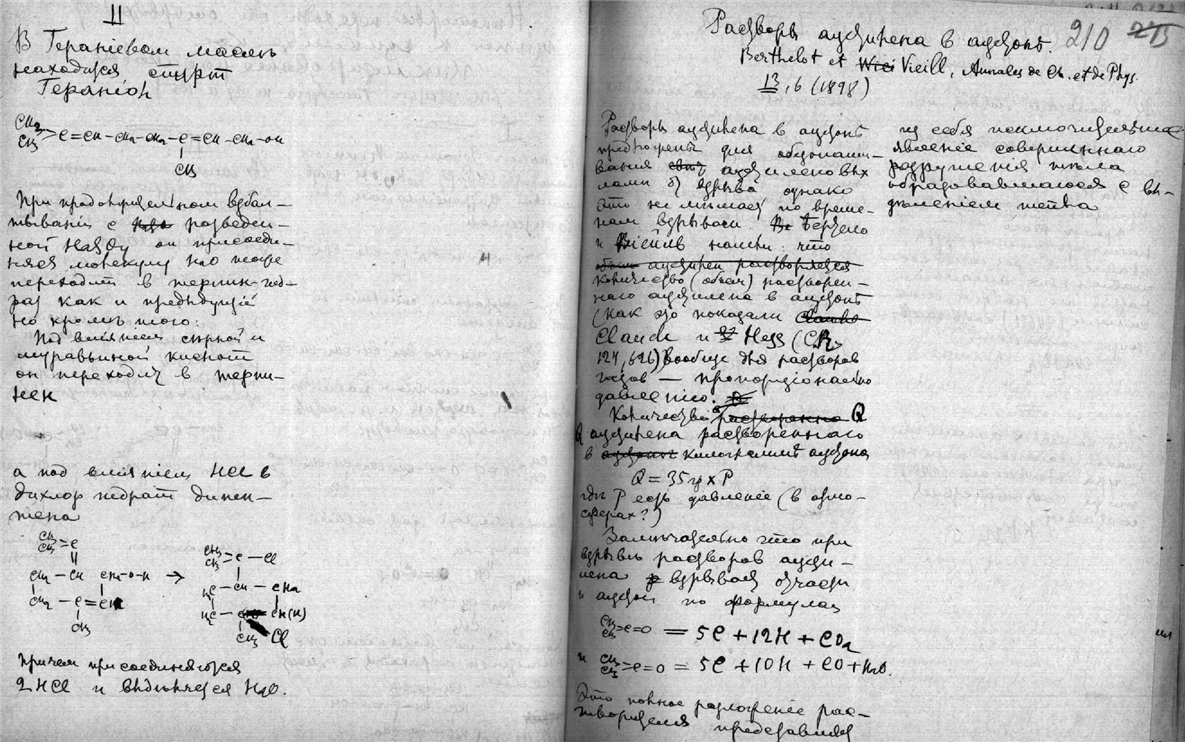 II
В Гераніевом маслѣ
находится спирт
Гераніол
CH3
CH3 >C=CH-CH2-CH2-C=CH-CH2-OH
CH3
При продолжительном взбал-
тываніи с разведен-
ной H2SO4 он присоеди-
няет молекулу H2O тоже
переходит в терпин-гид-
рат как и предыдущій
но кромѣ того:
Под вліянием сѣрной и
муравьиной кислот
он переходит в терпи-
нен
а под вліяніем HCl в
дихлор гидрат дипен-
тена
CH3
CH3 >=C
CH2 - CH CH2-O-H →
CH2 - C=CH
CH3
CH3
CH3 >C - Cl
C - CH - CH2
C - CH(H)
CH3 Cl
Причем присоединяются
2HCl и выдѣляется H2O.
210 215
Растворы ацетилена в ацетонѣ.
Berthelot et Vieill, Annales de Ch. et de Phys.
13, 6 (1898)
Растворы ацетилена в ацетонѣ
предложены для
вания ацетиленовых
ламп от взрыва однако
это не мѣшает по време-
нам взрываться. Бертело
и Віейль нашли что
ацетилен растворяется
количество (объем) растворен-
наго ацетилена в ацетонѣ
(как это показали
Claude и Hess (CR,
124, 626) вообще для растворов
газов — пропорціонально
давленію.
Количество растворенно Q
Q ацетилена растворённаго
в килограммѣ ацетона
Q = 35 гр x P
гдѣ P есть давленіе (в атмо-
сферах?)
Замѣчательно что при
взрывѣ растворов ацети-
лена взрывает отчасти
и ацетон по формулам
CH3
CH3 >C=O = 5C + 12H + CO2
и CH3
CH3 >C=O = 5C + 10H + CO + H2O.
Это полное разложеніе рас-
творителя представляет
из себя исключительное
явленіе совершеннаго
разрушения тѣла
образовавшагося с вы-
дѣленіем тепла